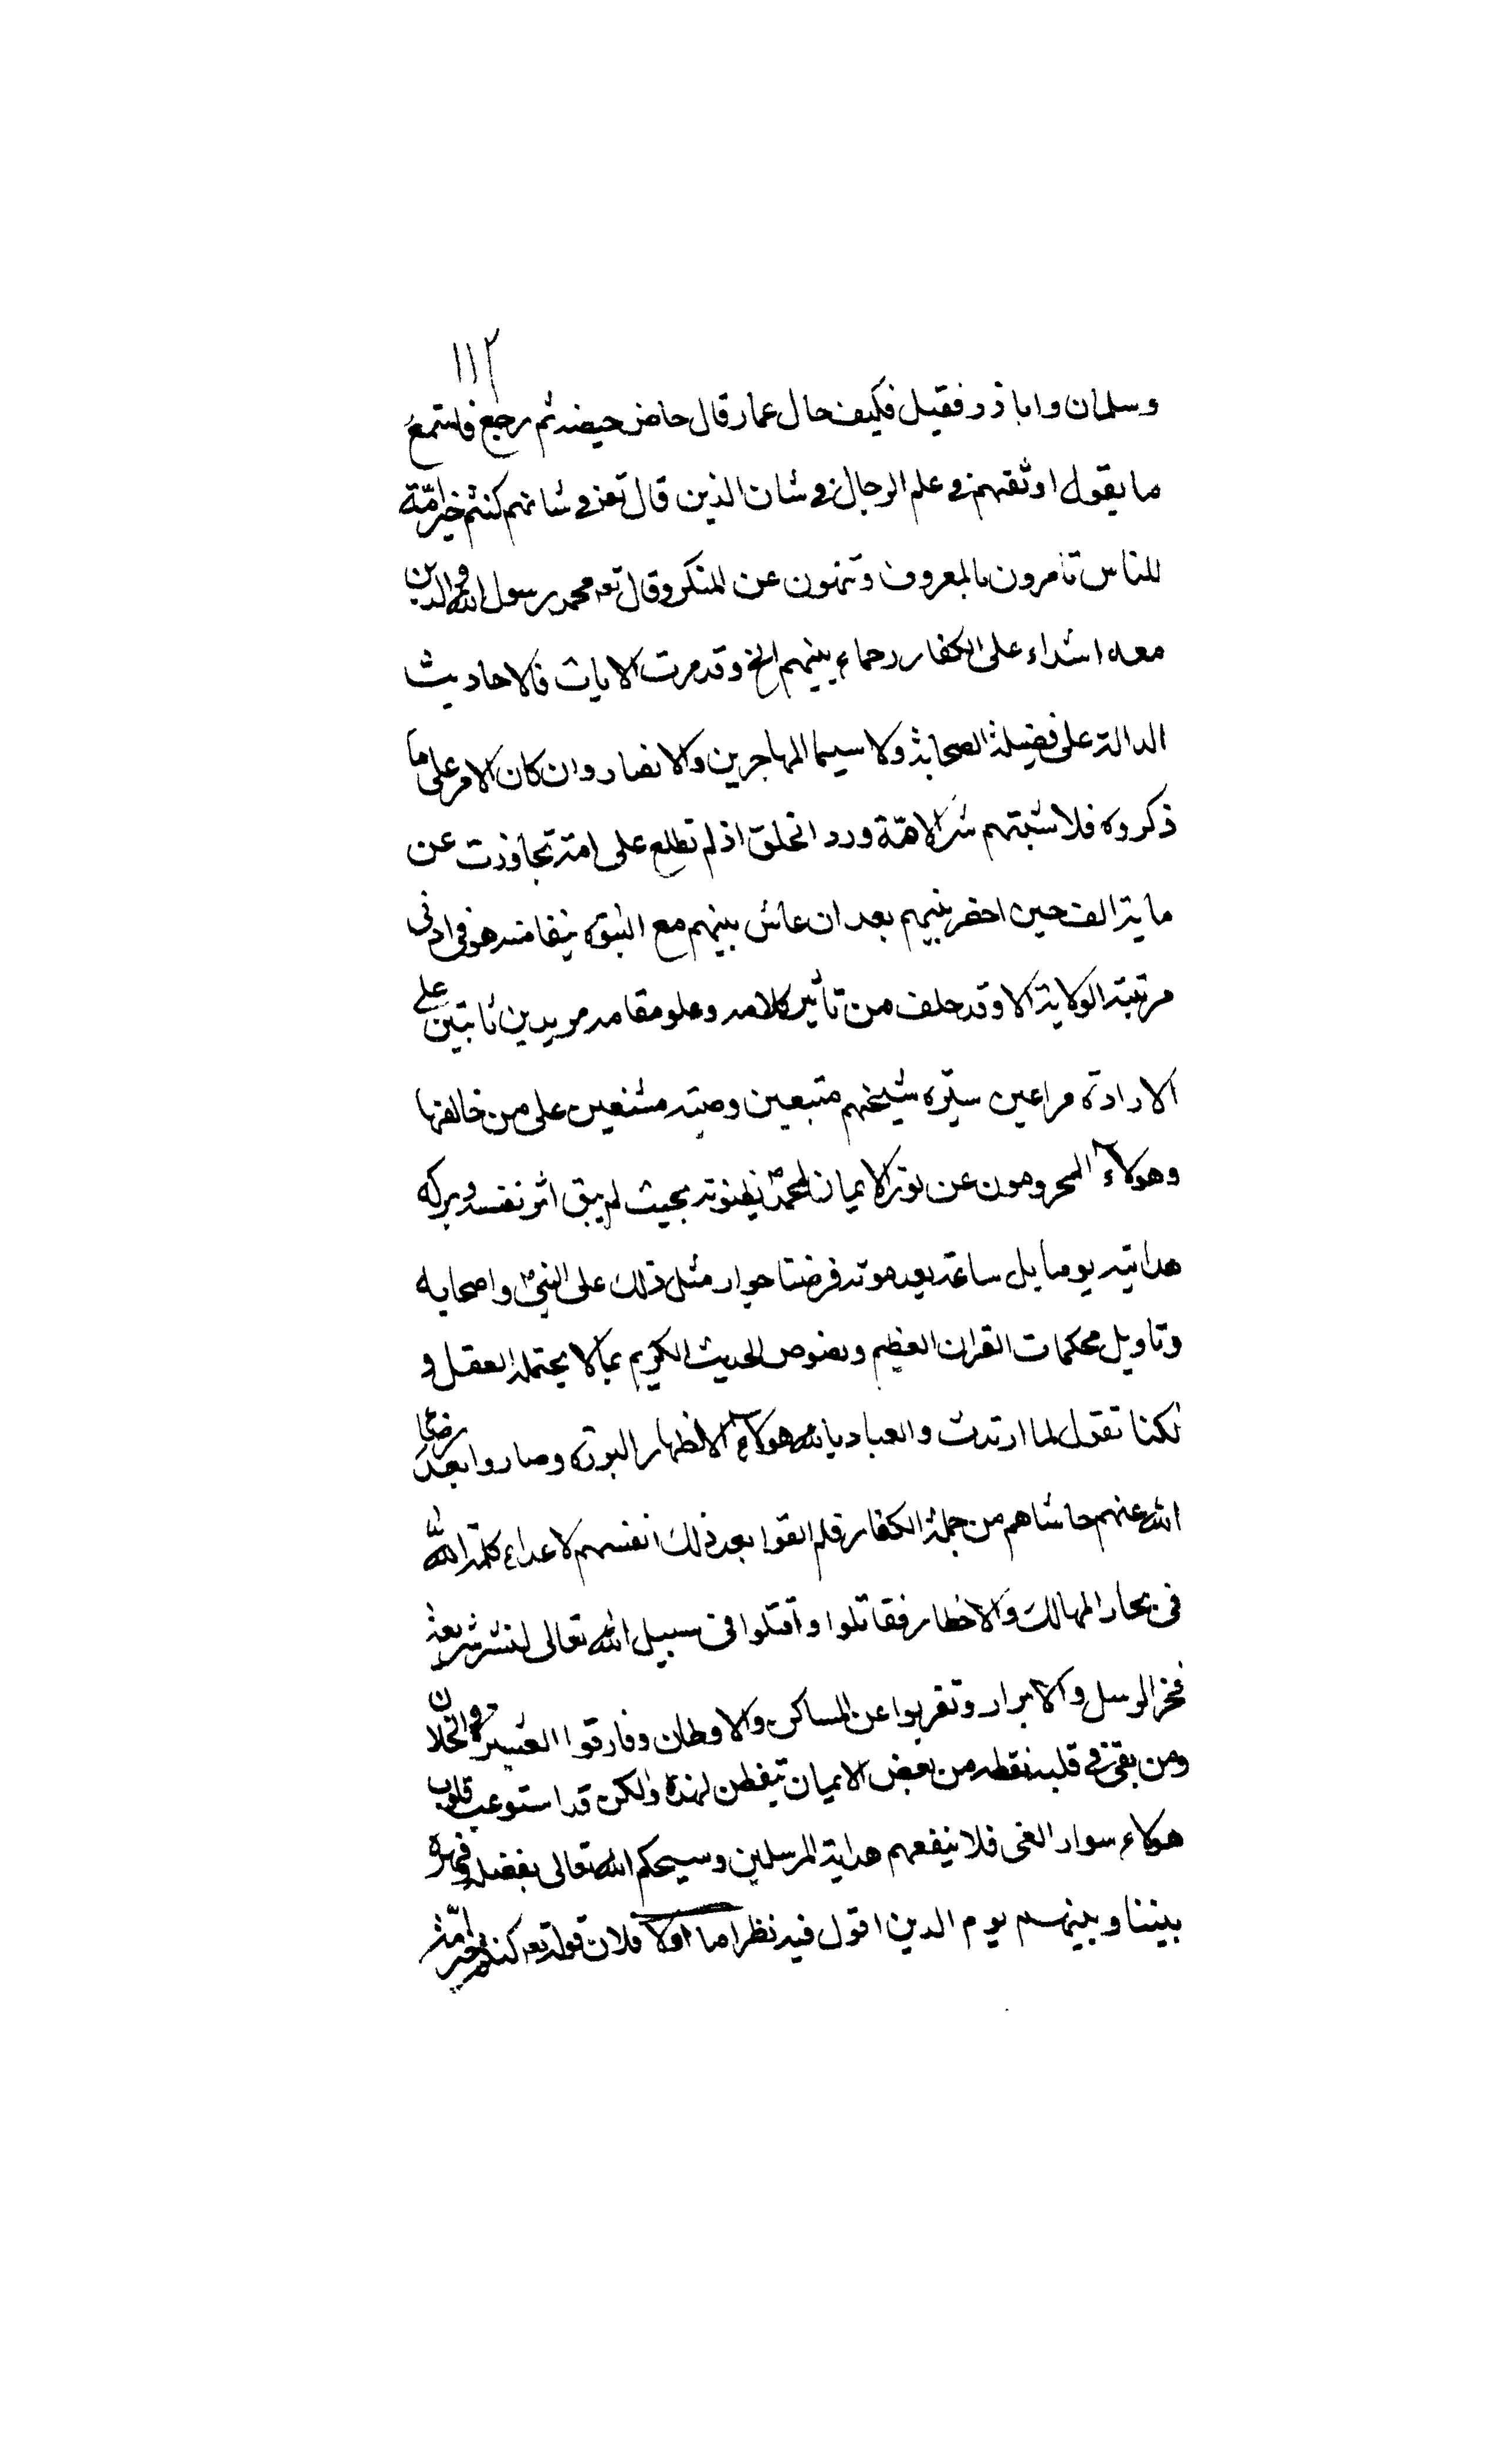 ١١٢
وسلمان واباذر فقيل فكيف حال عمار قال حاض حيضه ثم رجع فاستمع
ما يقول اوثقهم في علم الرجال في شان الذين قال تعز في شانهم كنتم خير امّة
للناس تامرون بالمعروف وتنهون عن المنكر وقال تعه محمد رسول الله والذين
معه اشداء على الكفار رحماء بينهم الخ وقد مرت الايات فالاحاديث
الدالة على فضيلة الصحابة ولا سيما المهاجرين والانصار وان كان الامر على ما
ذكروه فلا شبتهم شر الامّة ورد الخلق اذ لم تطلع على امة تجاوزت عن
ماية الف حين احضر بينهم بعد ان عاش بينهم مع النبوة نيفا منه هو في ادنى
مرتبة الولاية الا وقد حلف من تأثير كلامه وعلو مقامه مريدين ثابتين على
الارادة مراعين سيّره شيخهم متبعين وصيته مشنعين على من خالفها
وهولاء المحرومون عن نور الايمان لمحمد يظنونه بحيث لم يبق اثر نفسه وبركه
هدايته يوما بل ساعة بعد موته فرضنا جواز مثل ذلك على النبي واصحابه
وتاويل محكمات القران العظيم ونصوص الحديث الكريم بما لا يحتمله العقل و
لكنا نقول لما ارتدت والعباد بالله هولاء الاظهار النبوة وصاروا بعد رضا
الله عنهم حاشاهم من جملة الكفار فلم القوا بعد ذلك انفسهم لاعداء كلمة الله
في بحار المهالك والاخطار فقاتلوا وقتلوا في سبيل الله تعالى لنشر شريعة
فخر الرسل والابرار وتغربوا عن المساكن والاوطان وفارقوا العشيرة والخلان
ومن بقي في قلبه نقطه من بعض الايمان تيفطن لهذه ولكن قد استوعب قلوب
هولاء سوار الغى فلا ينفعهم هداية المرسلين وسيحكم الله تعالى بفضله وقهره
بيننا وبينهم يوم الدين اقول فيه نظر اما اولا فلان قوله تعه كنتم خير امّة